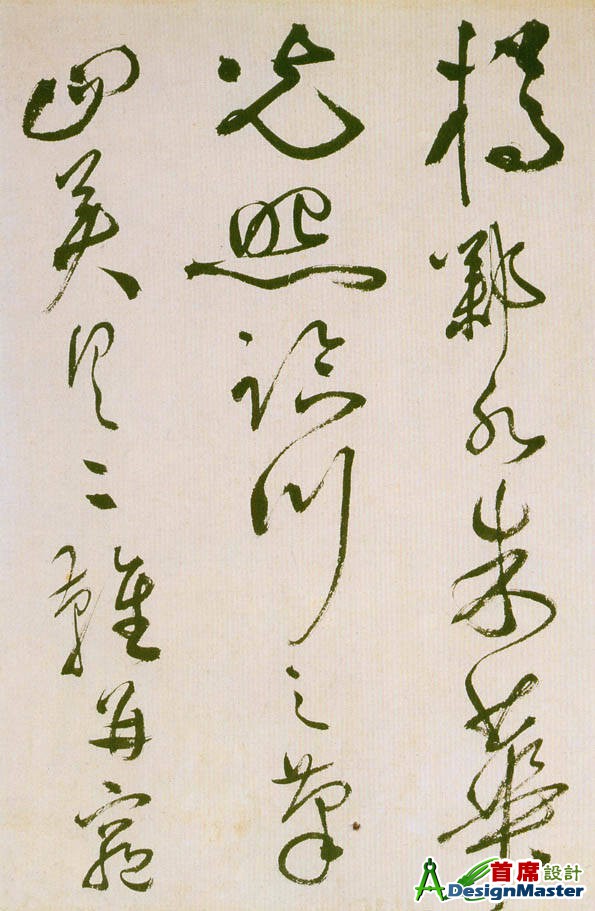 樽鄴水朱華
光照臨川之筆
四美具二難并窮
首席設計
DesignMaster